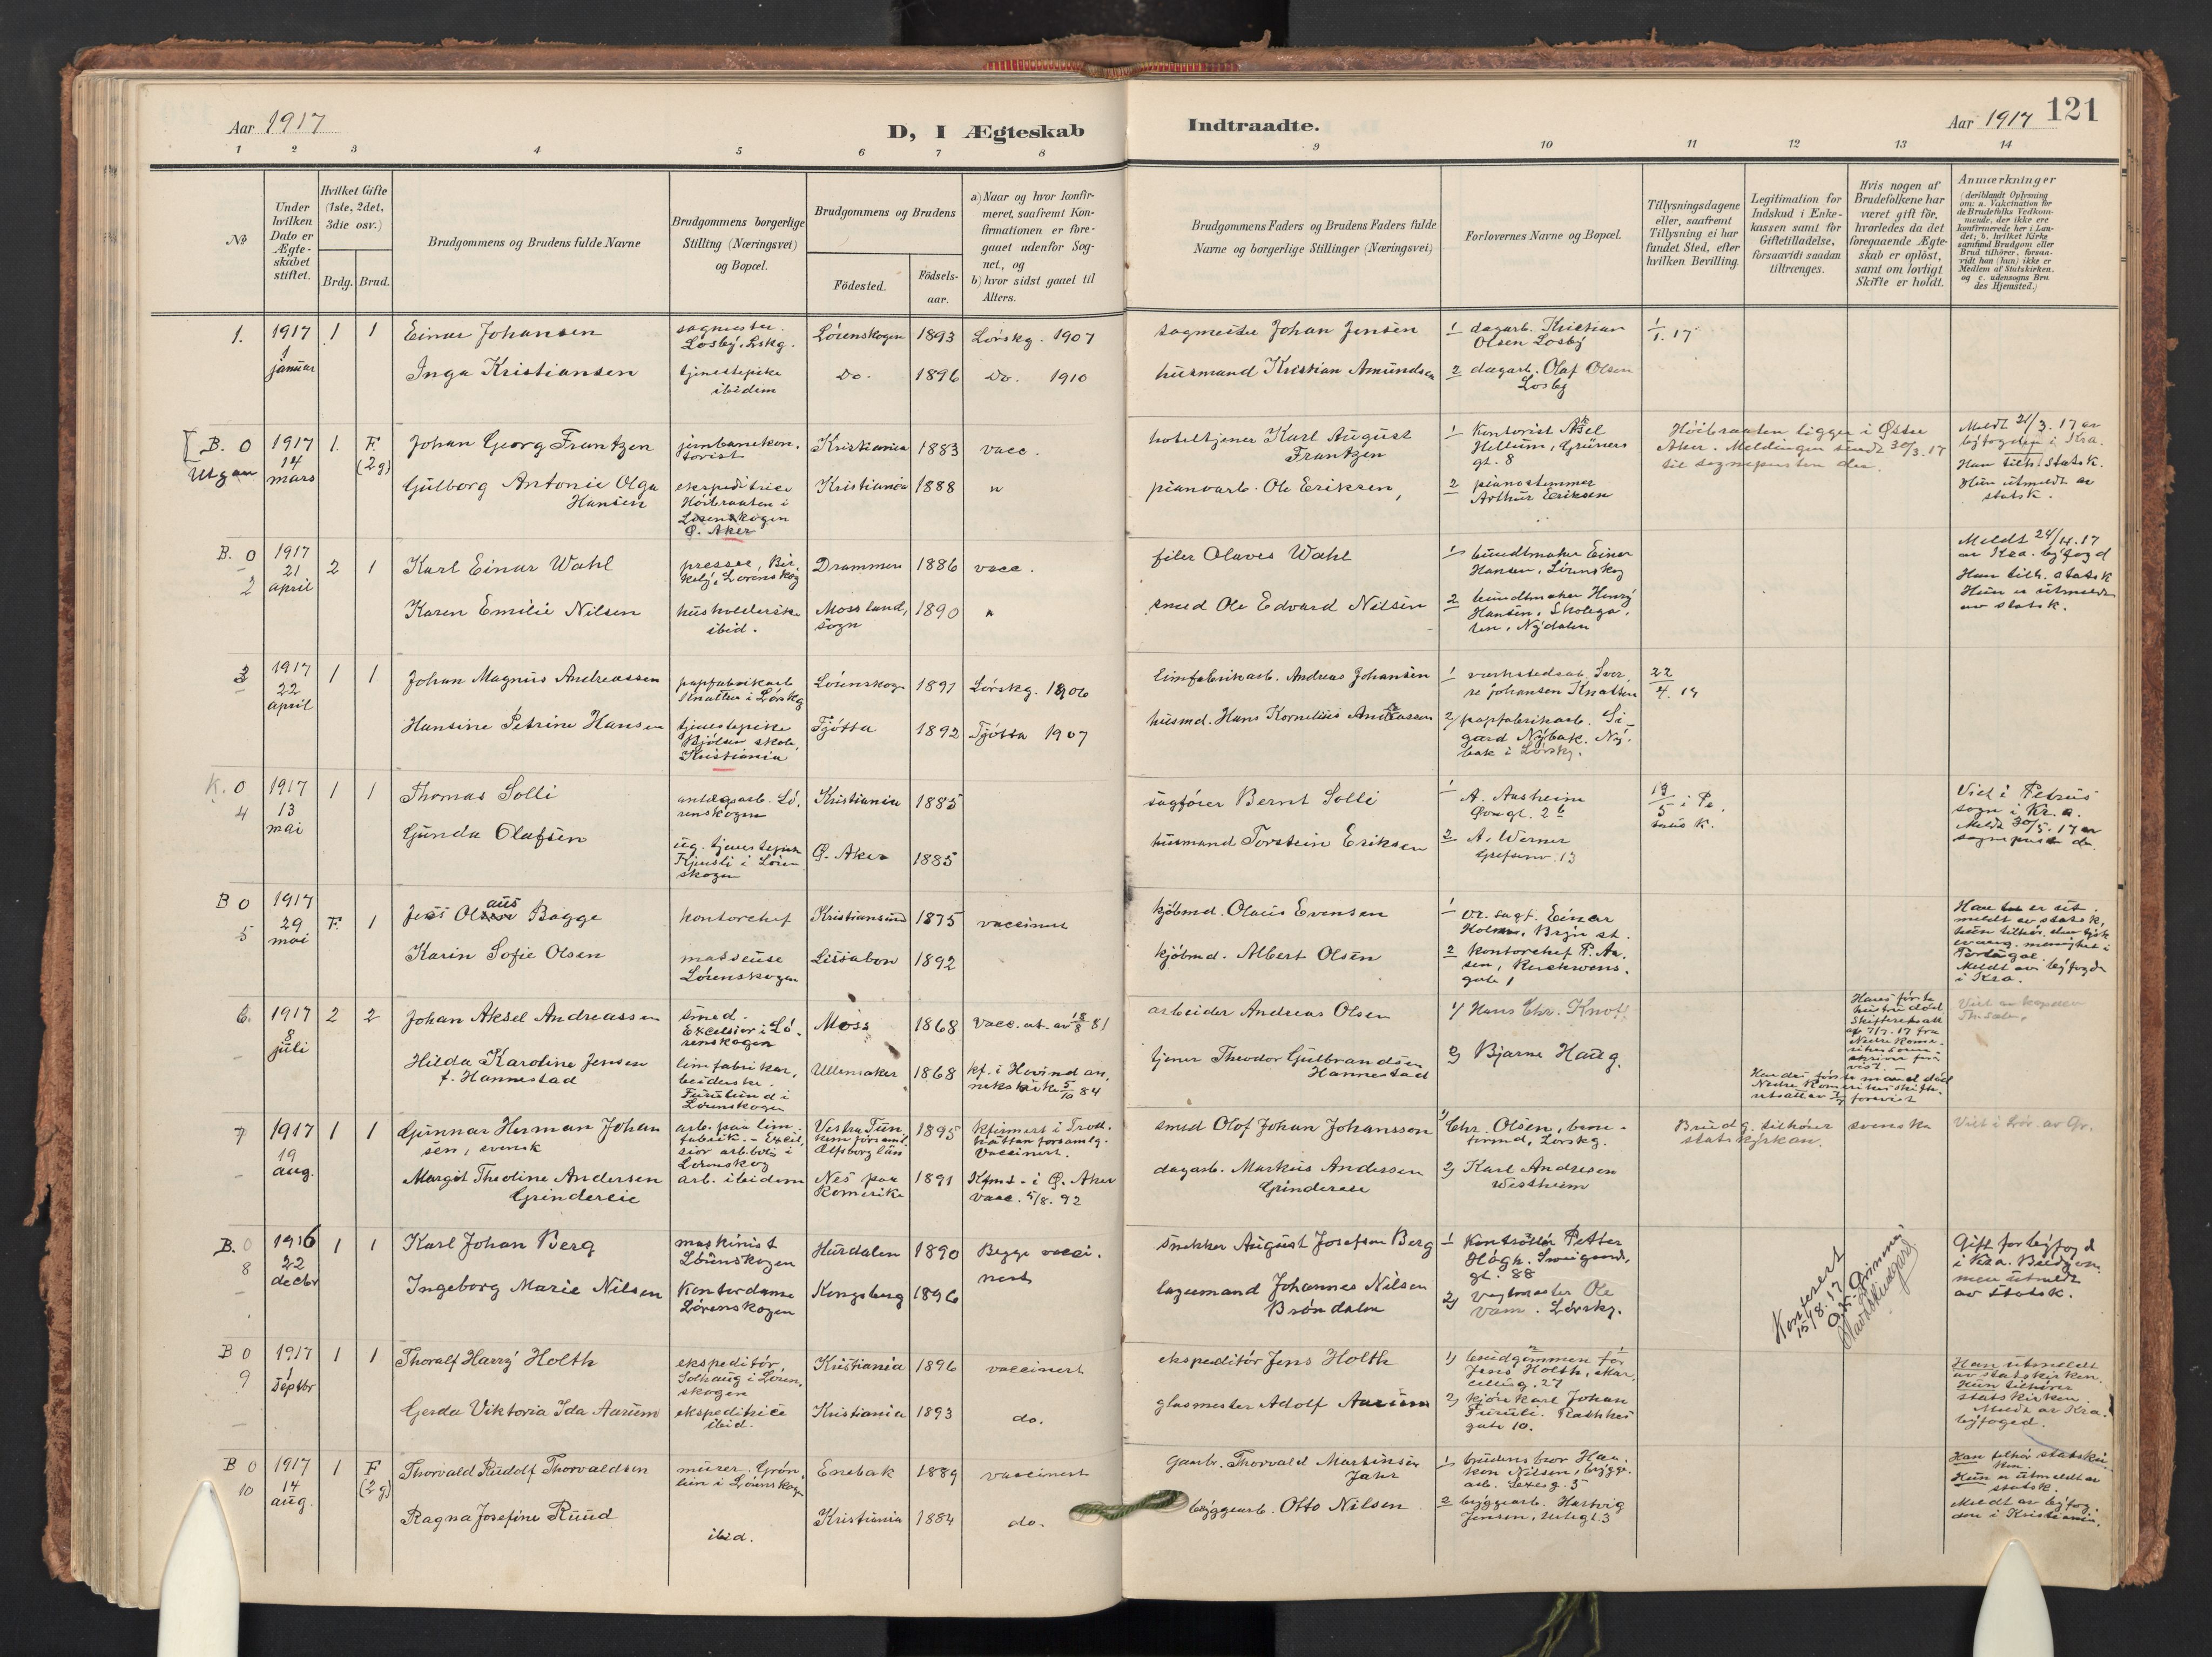 Aar 1917
D, I Ægteskab
Indtraadte.
Aar 1917 121
1 2 3 4 5 6 7 8 9 10 11 12 13 14
No
Under
hvilken
Dato er
Ægte-
skabet
stiftet.
Hvilket Gifte
(1ste, 2det,
3die osv.)
Brdg. Brud.
Brudgommens og Brudens fulde Navne
Brudgommens borgerlige
Stilling (Næringsvei)
og Bopæl.
Brudgommens og Brudens
Fødested.
Fødsels-
aar.
a) Naar og hvor konfir-
meret, saafremt Kon-
firmationen er fore-
gaaet udenfor Sog-
net, og
b) hvor sidst gaaet til
Alters.
Brudgommens Faders og Brudens Faders fulde
Navne og borgerlige Stillinger (Næringsvei)
Forlovernes Navne og Bopæl.
Tillysningsdagene
eller, saafremt
Tillysning ei har
fundet Sted, efter
hvilken Bevilling.
Legitimation for
Indskud i Enke-
kassen samt for
Giftetilladelse,
forsaavidt saadan
tiltrænges.
Hvis nogen af
Brudefolkene har
været gift før,
hvorledes da det
foregaaende Ægte-
skab er opløst,
samt om lovligt
Skifte er holdt.
Anmærkninger
(deriblandt Oplysning
om: a. Vakcination for
de Brudefolks Vedkom-
mende, der ikke ere
konfirmerede her i Lan-
det; b. hvilket Kirke
samfund Brudgom eller
Brud tilhører, forsaa-
vidt han (hun) ikke er
Medlem af Statskirken.
og c. udensogns Bru
des Hjemsted.)
1. 1917
1
januar
1 1
Einar Johansen
sagmester.
Losby, Lskg.
Lørenskogen 1893 Lørskg. 1907
sagmester Johan Jensen
1 dagarb. Kristian
Olsen Losby
1/1. 17
Inga Kristiansen
tjenestepike
ibidem
Do. 1896 Do. 1910
husmand Kristian Amundsen
2 dagarb. Olaf Olsen
Losby
B. 0
Utgaar
1917
14
mars
1. F.
(2 g)
Johan Georg Frantzen
jernbanekon-
torist
Kristiania 1883 vacc.
hoteltjener Karl August
Frantzen
1 Kontorist Aksel
Hellum, Grüners
gt. 8
Høibraaten ligger i Østre
Aker. Meldingen sendt 30/3. 17
til sognepresten der.
Meldt 21/3. 17 av
byfogden i Kra.
Han tilh. statsk.
Hun utmeldt av
statsk.
Gulborg Antonie Olga
Hansen
ekspeditrice
Høibraaten i
Lørenskogen
Ø. Aker
Kristiania 1888 "
pianoarb. Ole Eriksen,
2 pianostemmer
Arthur Eriksen
B. 0
2
1917
21
april
2 1
Karl Einar Wahl
presser, Bir-
kely, Lørenskog
Drammen 1886 vacc.
filer Olaves Wahl
1 bundtmaker Einar
Hansen, Lørenskog
Meldt 24/4. 17
av Kra. byfogd
Han tilh. statsk
Hun er utmeldt
av statsk.
Karen Emilie Nilsen
husholderske
ibid.
Moss land-
sogn
1890 "
smed Ole Edvard Nilsen
2 bundtmaker Henry
Hansen, Skolega-
ten, Nydalen
3 1917
22
april
1 1
Johan Magnus Andreassen
papfabrikarb
Knatten i Lørskg
Lørenskogen 1891 Lørskg. 1906
Limfabrikarb. Andreas Johansen
1 verkstedsarb. Sver-
re Johansen Knatten
22/4. 17
Hansine Petrine Hansen
tjenestepike
Bjølsen skole,
Kristiania
Tjøtta 1892 Tjøtta 1907
husmd. Hans Kornelius Andreassen
2) papfabrikarb. Si-
gard Nybak. Ny-
bak i Lørskg.
K. 0
4
1917
13
mai
1 1
Thomas Solli
anlegsarb. Lø-
renskogen
Kristiania 1885
sagfører Bernt Solli
1 A. Aasheim
gt. 2 b
13/5 i Pe
trus K.
Viet i Petrus
sogn i Kr. a.
Meldt 30/5. 17 av
sognepresten der.
Gunda Olafsen
ug. tjenestepike
i Løren
skogen
Ø. Aker 1885
husmand Torstein Eriksen
2 A. Werner
Grefsenv. 13
B 0
5
1917
29
mai
F. 1
Jens Olaus Bagge
kontorchef
Kristiansund 1875 vaccinert
kjøbmd. Olaus Evensen
1 o.r. sagf. Einar
Holmen, Bryn st.
Han er ut-
meldt av statsk,
hun tilhør. den tysk
evang. menighet i
Portugal.
Meldt av byfogden
i Kra.
Karin Sofie Olsen
masseuse
Lørenskogen
Lissabon 1892
kjøbmd. Albert Olsen
2 kontorchef P. An-
sen,
gate 1
6. 1917
8
juli
2 2
Johan Aksel Andreassen
smed.
Excelsior i Lø-
renskogen
Moss 1868 Vacc. at. av 18/8 81
arbeider Andreas Olsen
1) Hans Chr. Knoff
Hans første
hustru død
Skifteretsatt
av 7/7. 17 fra
Nedre Rome-
rikes soren-
skriver fore-
vist.
Viet av kapelan
Hilda Karoline Jensen
f. Hannestad
limfabrikar-
beiderske.
Furulund i
Lørenskogen
Ullensaker 1868 kf. i Hovind an-
nekskirke 5/10 84
tjener Theodor Gulbrandsen
Hannestad
2) Bjarne Haug.
Hendes første mand død
Nedre Romerikes skifte-
retsatt av forevist
7 1917
19
aug.
1 1
Gunnar Herman Johan
sen, svensk
arb. paa lim-
fabrik. - Excel-
sior arb.bolig i
Lørenskog
Vestra Tun
hem församl.
Elfsborg län
1895 Kfirmert i Troll-
hättan forsamlg.
Vaccinert.
smed Olof Johan Johansson
1) Chr. Olsen, brand-
formd, Lørskg.
Brudg. tilhører svenska
statskyrkan.
Viet i Lør. av Gr.
Margit Theoline Andersen
Grindereie
arb. ibidem
Nes paa
Romerike
1891 Kfmt. i Ø. Aker
vacc. 5/8. 92
dagarb. Markus Andersen
Grindereie
2) Karl Andresen
Westheim
B. 0
8
1916
22
decbr
1 1
Karl Johan Berg
maskinist
Lørenskogen
Hurdalen 1890 Begge vacci-
nert
snekker August Josefsen Berg
1 Kontrollør Petter
Høgh. Sweigaards
gt. 88
Konferert
15/8. 17
Gift for byfogd
i Kra. Brudgom
men utmeldt
av statsk.
Ingeborg Marie Nilsen
Kontordame
Lørenskogen
Kongsberg 1896
lagermand Johannes Nilsen
Brøndalen
2) Vegtmester Ole
Vam. Lørskg.
B 0
9
1917
1
Septbr
1 1
Thoralf Harry Holth
ekspeditør,
Solhaug i Løren-
skogen
Kristiania 1896 vaccinert
ekspeditør Jens Holth
1) brudgommen far
Jens Holth, Mar-
cellusg. 27
Han utmeldt
av statskirken.
Hun tilhører
statskirken.
Meldt av Kra.
byfoged.
Gerda Viktoria Ida Aarum
ekspeditrice
ibid.
Kristiania 1893 do.
glasmester Adolf Aarum
2) kjørekarl Johan
Furuli. Rathkes
gate 10.
B 0
10
1917
14
aug.
1 F
(2 g)
Thorvald Rudolf Thorvaldsen
murer. Grøn-
lien i Lørenskogen
Enebak 1889 vaccinert
gaabr. Thorvald Martinsen
Jahr
1) brudens bror Haa-
kon Nilsen, bygge-
arb. Sexesg. 5
Han tilhør statskir
ken.
Hun er utmeldt av
statsk.
Meldt av byfog-
den i Kristiania.
Ragna Josefine Ruud
ibid.
Kristiania 1884 do.
byggearb. Otto Nilsen
2 byggearb. Hartvig
Jensen, 3